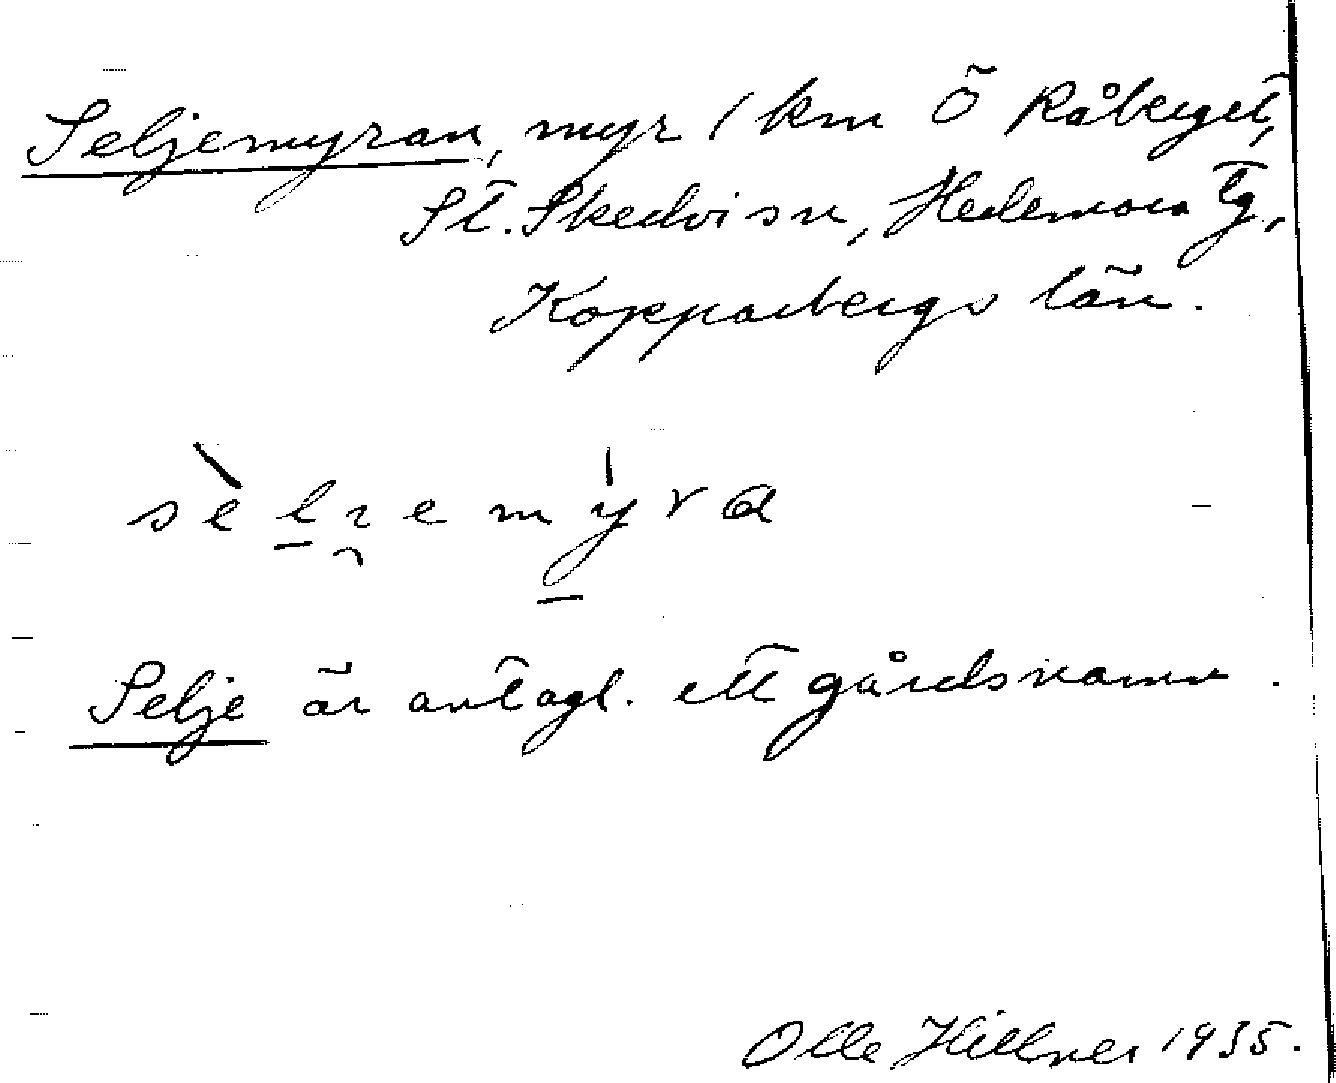 Seljemyran, myr 1 km Ö Råberget,
St. Skedvi sn, Hedemora tg,
Kopparbergs län.
sèlɿemýra
Selje är antagl. ett gårdsnamn.
Olle Hillner 1935.